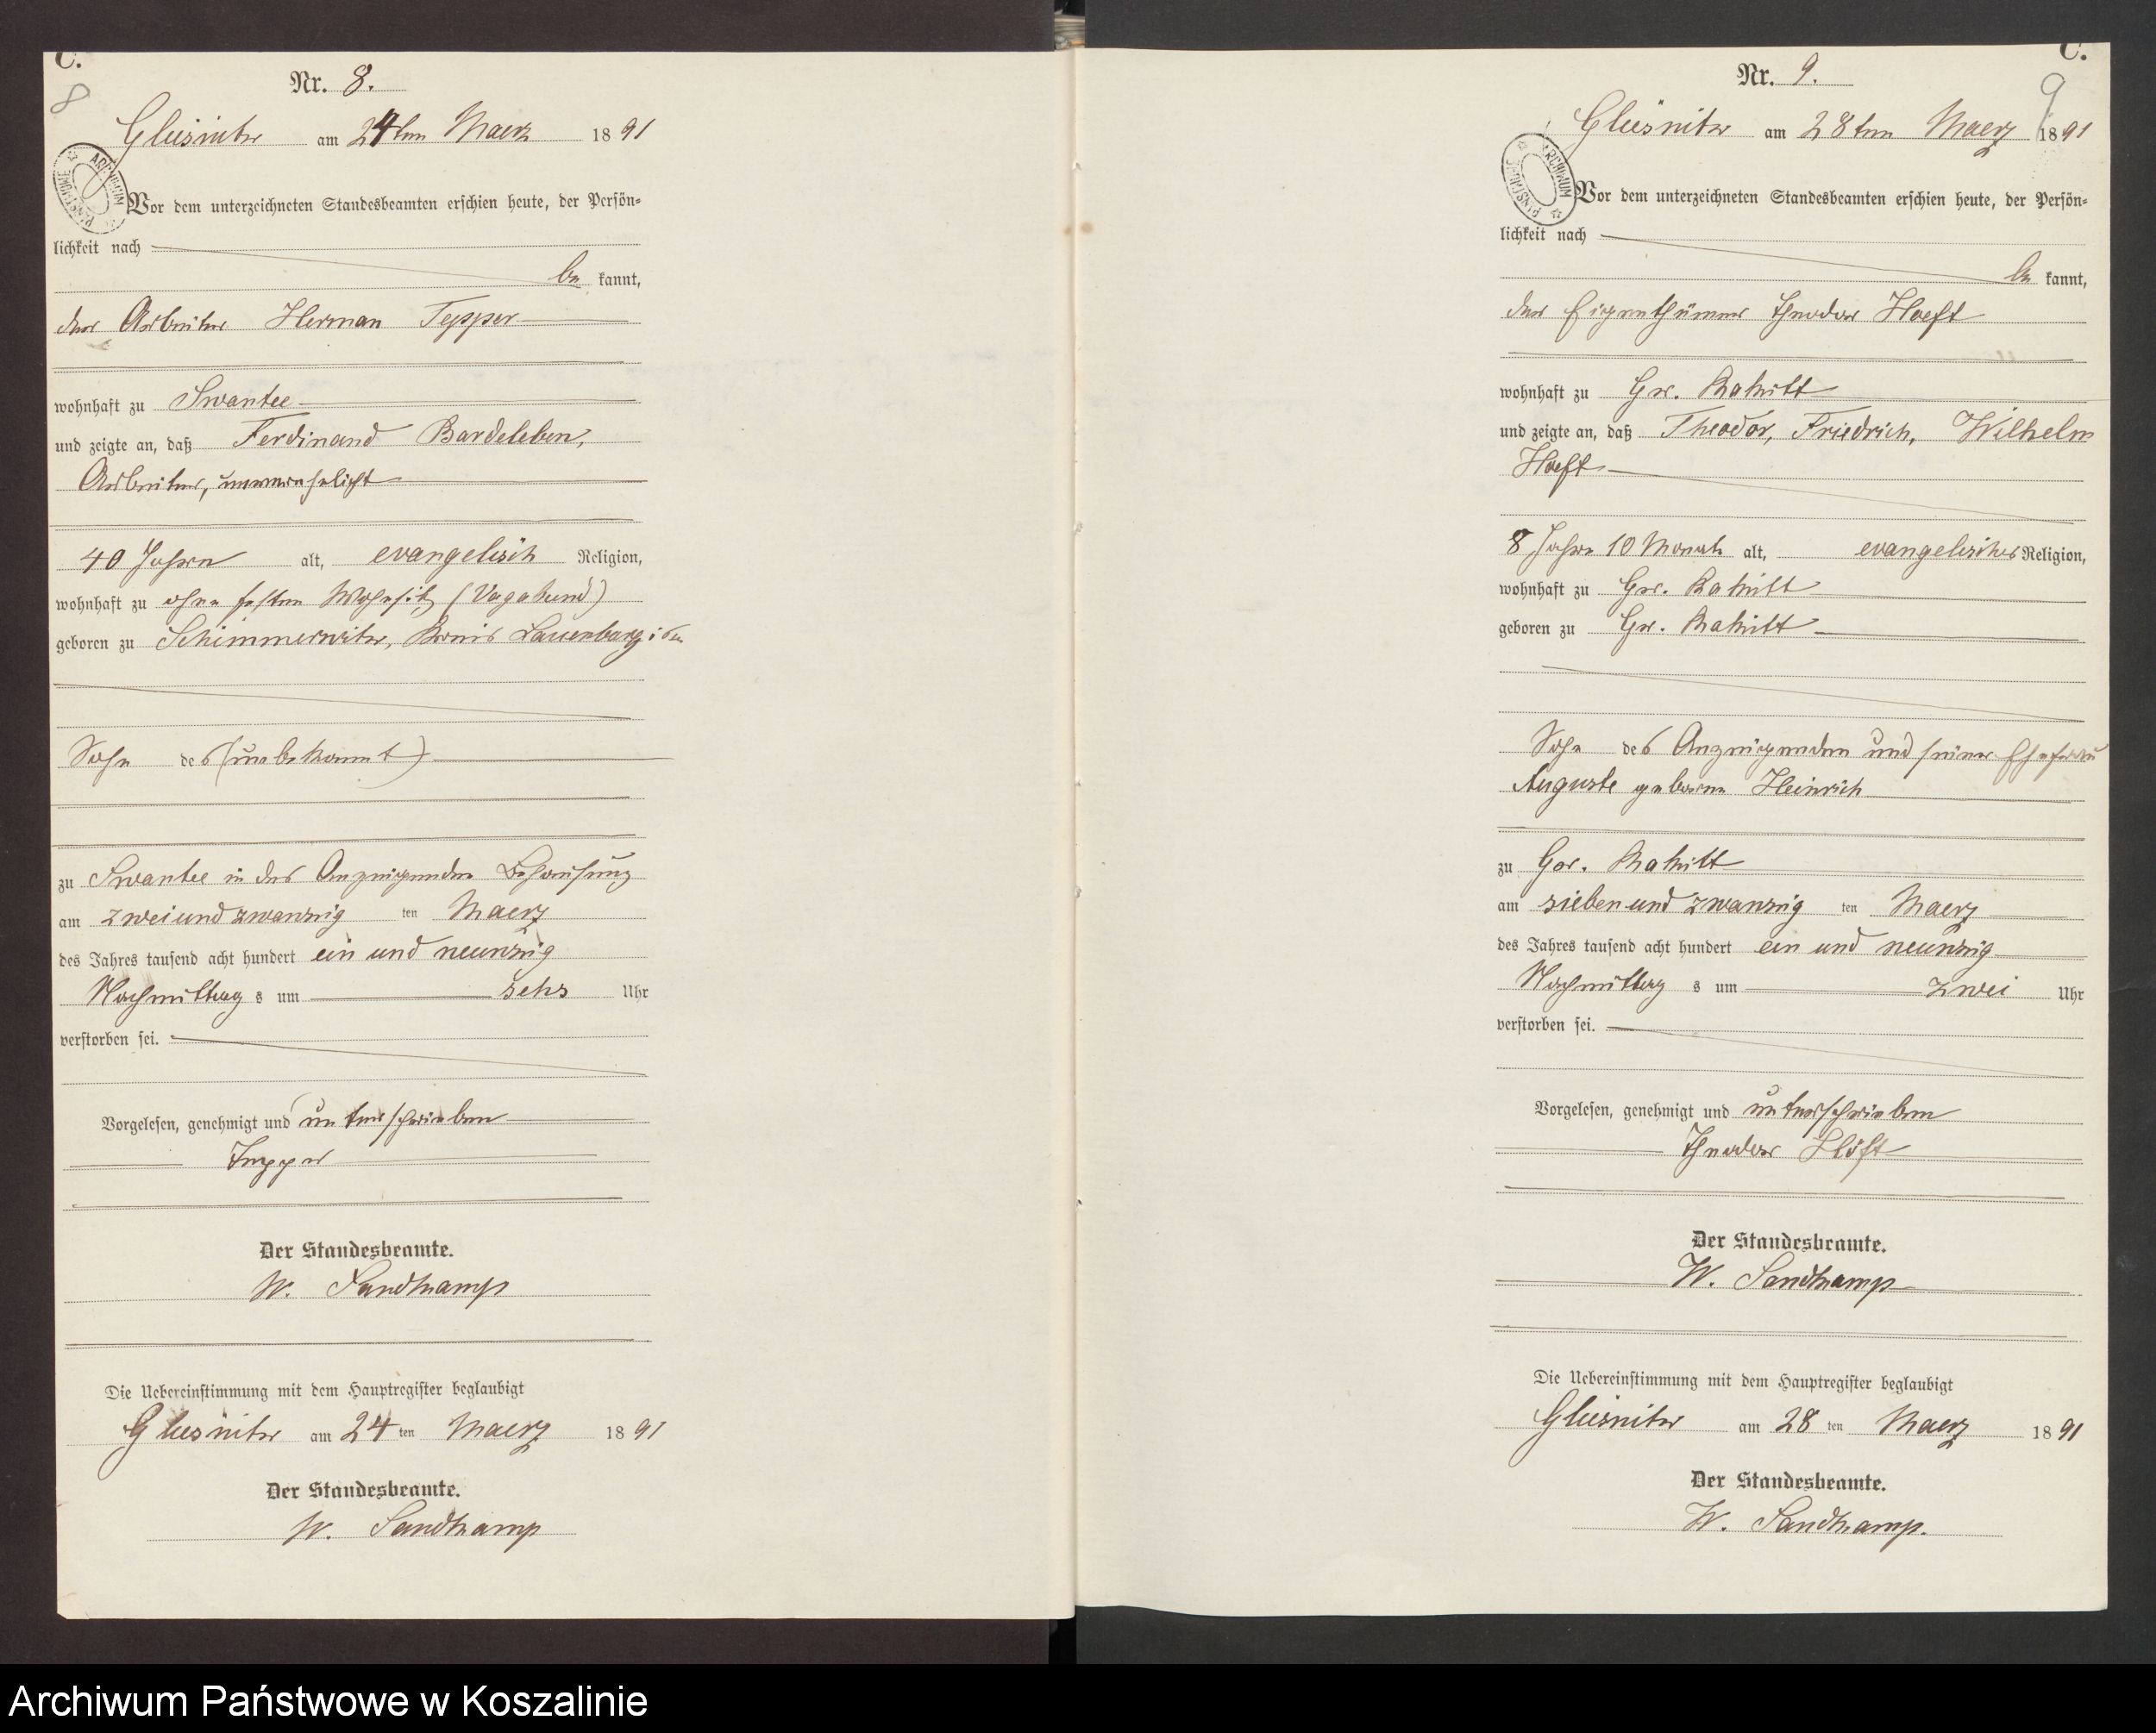 C.
8
Nr. 8.
Glusnitz am 24ten Maerz 1891
Vor dem unterzeichneten Standesbeamten erschien heute, der Persön-
lichkeit nach
be kannt,
der Arbeiter Herman Tepper
wohnhaft zu Swantee
und zeigte an, daß Ferdinand Bardeleben,
Arbeiter, unverehelicht
40 Jahren alt, evangelisch Religion,
wohnhaft zu ohne festen Wohnsitz (Vagabund)
geboren zu Schimmerwitz, Kreis Lauenburg
Sohn des (unbekannt)
zu Swantee in des Anzeigenden Behausung
am zweiundzwanzig ten Maerz
des Jahres tausend acht hundert ein und neunzig
Nachmittag s um sehs Uhr
verstorben sei.
Vorgelesen, genehmigt und unterschrieben
Tepper
Der Standesbeamte.
W. Sandkamp
Die Uebereinstimmung mit dem Hauptregister beglaubigt
Glusnitz am 24 ten Maerz 1891
Der Standesbeamte.
W. Sandkamp
C.
9
Nr. 9.
Glusnitz am 28ten Maerz 1891
Vor dem unterzeichneten Standesbeamten erschien heute, der Persön-
lichkeit nach
be kannt,
der Eigenthümer Theodor Hoeft
wohnhaft zu Gr. Rakitt
und zeigte an, daß Theodor, Friedrich, Wilhelm
Hoeft
8 Jahre 10 Monate alt, evangelischer Religion,
wohnhaft zu Gr. Rakitt
geboren zu Gr. Rakitt
Sohn des Anzeigenden und seiner Ehefrau
Auguste geborene Heinrich
zu Gr. Rakitt
am sieben und zwanzig ten Maerz
des Jahres tausend acht hundert ein und neunzig
Nachmittag s um zwei Uhr
verstorben sei.
Vorgelesen, genehmigt und unterschrieben
Theodor Höft
Der Standesbeamte.
W. Sandkamp
Die Uebereinstimmung mit dem Hauptregister beglaubigt
Glusnitz am 28 ten Maerz 1891
Der Standesbeamte.
W. Sandkamp.
Archiwum Państwowe w Koszalinie